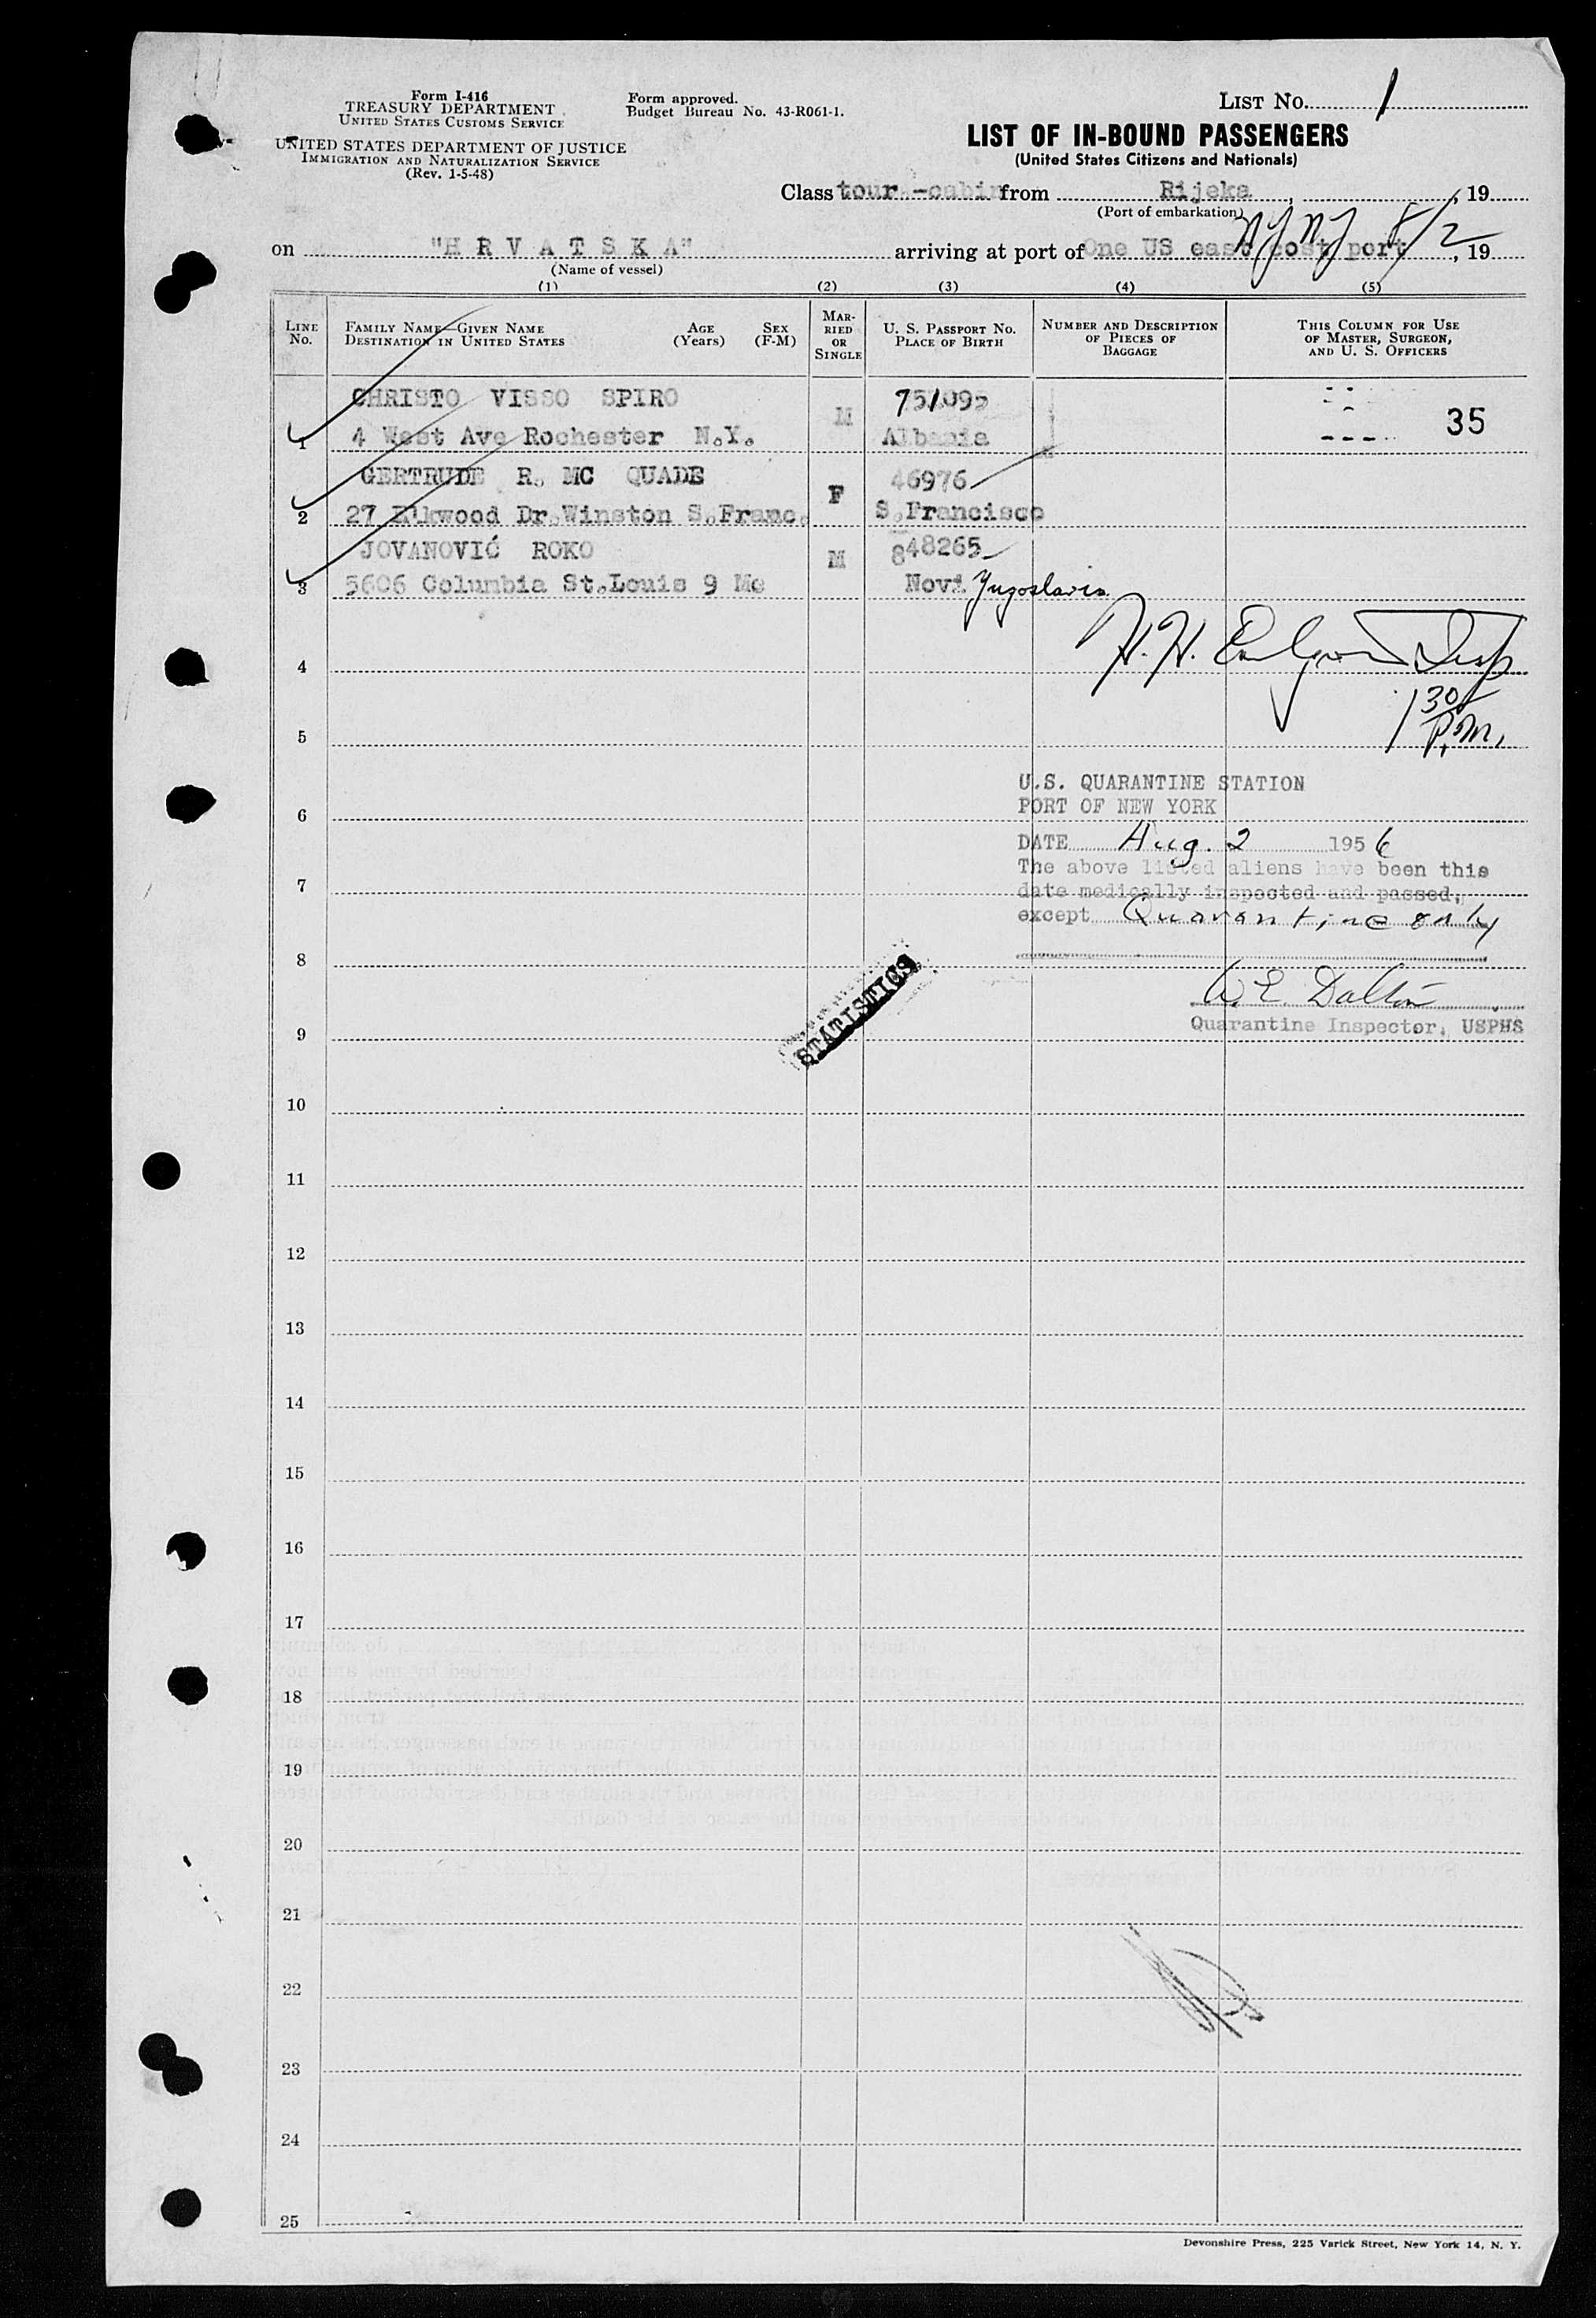 Form I-416
TREASURY DEPARTMENT
UNITED STATES CUSTOMS SERVICE
UNITED STATES DEPARTMENT OF JUSTICE
IMMIGRATION AND NATURALIZATION SERVICE
(Rev. 1-5-48)
Form approved.
Budget Bureau No. 43-R061-1.
LIST No. 1
LIST OF IN-BOUND PASSENGERS
(United States Citizens and Nationals)
Class tour -cabin from Rijeka, , 19
(Port of embarkation)
on "H R V A T S K A" arriving at port of One US east cost port NY NY 8/2, 19
(Name of vessel)
(1) (2) (3) (4) (5)
LINE No.
FAMILY NAME—GIVEN NAME
DESTINATION IN UNITED STATES
AGE (Years)
SEX (F-M)
MARRIED OR SINGLE
U. S. PASSPORT No.
PLACE OF BIRTH
NUMBER AND DESCRIPTION OF PIECES OF BAGGAGE
THIS COLUMN FOR USE OF MASTER, SURGEON, AND U. S. OFFICERS
CHRISTO VISSO SPIRO M 751095 35
1 4 West Ave Rochester N.Y. Albania
GERTRUDE R. MC QUADE F 46976
2 27 Elkwood Dr.Winston S.Franc. S.Francisco
JOVANOVIĆ ROKO M 848265
3 5606 Columbia St.Louis 9 Mo Novi Yugoslavia
4 H.H.
1 30
P.M.
5
U.S. QUARANTINE STATION
PORT OF NEW YORK
6
DATE Aug. 2 1956
The above listed aliens have been this
7
date medically inspected and passed,
except Quarantine only
8
STATISTICS
W. E. Dalton
Quarantine Inspector, USPHS
9
10
11
12
13
14
15
16
17
18
19
20
21
22
23
24
25
Devonshire Press, 225 Varick Street, New York 14, N. Y.